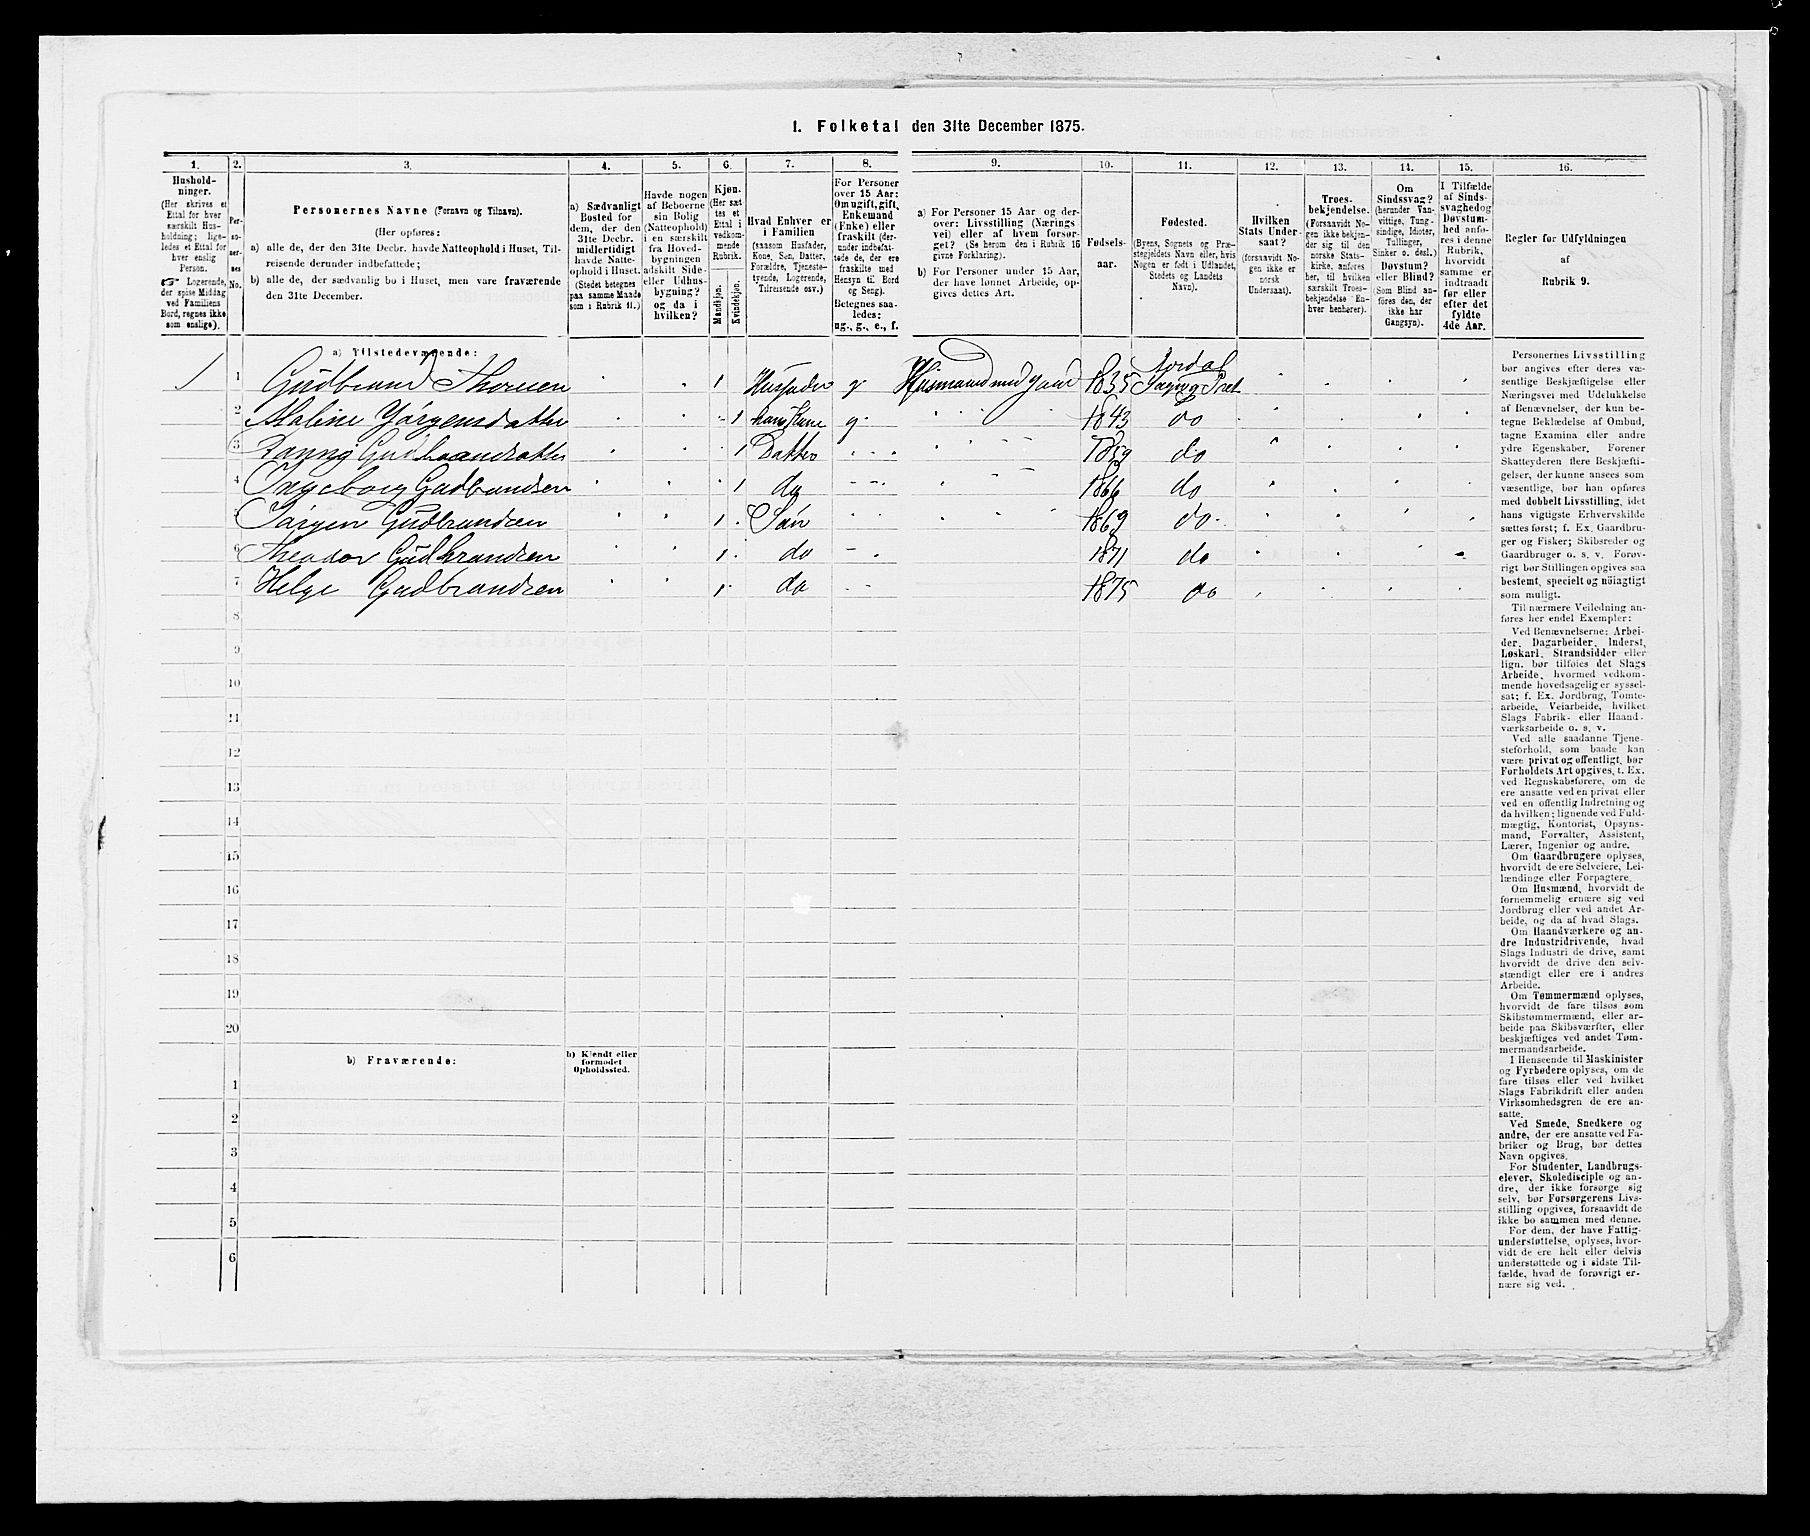 1. Folketal den 31te December 1875.
1.
Hushold-
ninger.
(Her skrives et
Ettal for hver
særskilt Hus-
holdning; lige-
ledes et Ettal for
hver enslig
Person.
☞ Logerende,
der spise Middag
ved Familiens
Bord, regnes ikke
som enslige).
2.
Per-
so-
ner-
nes
No.
3.
Personernes Navne (Fornavn og Tilnavn).
(Her opføres:
a) alle de, der den 31te Decbr. havde Natteophold i Huset, Til-
reisende derunder indbefattede;
b) alle de, der sædvanlig bo i Huset, men vare fraværende
den 31te December.
4.
a) Sædvanligt
Bosted for
dem, der den
31te Decbr.
midlertidigt
havde Natte-
ophold i Huset.
(Stedet betegnes
paa samme Maade
som i Rubrik 11.)
5.
Havde nogen
af Beboerne
sin Bolig
(Natteophold)
i en særskilt
fra Hoved-
bygningen
adskilt Side-
eller Udhus-
bygning?
og da i
hvilken?
6.
Kjøn.
(Her sæt
tes et
Ettal i
vedkom-
mende
Rubrik.
Mandkjøn.
Kvindekjøn.
7.
Hvad Enhver er
i Familien
(saasom Husfader,
Kone, Søn, Datter,
Forældre, Tjeneste-
tyende, Logerende,
Tilreisende osv.)
8.
For Personer
over 15 Aar:
Om ugift, gift,
Enkemand
(Enke) eller
fraskilt (der-
under indbefat-
tede de, der ere
fraskilte med
Hensyn til Bord
og Seng).
Betegnes saa-
ledes:
ug., g., e., f.
9.
a) For Personer 15 Aar og der-
over: Livsstilling (Nærings
vei) eller af hvem forsør-
get? (Se herom den i Rubrik 16
givne Forklaring).
b) For Personer under 15 Aar,
der have lønnet Arbeide, op-
gives dettes Art.
10.
Fødsels-
aar.
11.
Fødested.
(Byens, Sognets og Præ-
stegjeldets Navn eller, hvis
Nogen er født i Udlandet,
Stedets og Landets
Navn).
12.
Hvilken
Stats Under-
saat?
(forsaavidt No-
gen ikke er
norsk
Undersaat).
13.
Troes-
bekjendelse.
(Forsaavidt No-
gen ikke bekjen-
der sig til den
norske Stats-
kirke, anføres
her, til hvilken
særskilt Troes-
bekjendelse En-
hver henhører).
14.
Om
Sindssvag?
(herunder Van-
vittige, Tung-
sindige, Idioter,
Tullinger,
Sinker o. desl.)
Døvstum?
eller Blind?
(Som Blind an-
føres den, der
ikke har
Gangsyn).
15.
I Tilfælde
af Sinds-
svaghed og
Døvstum-
hed anfø-
res i denne
Rubrik,
hvorvidt
samme er
indtraadt
før eller
efter det
fyldte
4de Aar.
16.
Regler for Udfyldningen
af
Rubrik 9.
a) Tilstedeværende:
1 1 Gudbrand Thorsen 1 Husfader g Husmand med Jord 1835 Sogn og Præt
2 Maline Jørgensdatter 1 hans Kone g. 1843 do
3 1 Datter 1859 do
4 Ingeborg Gudbrandsen 1 do 1866 do
5 Jørgen Gudbrandsen 1 Søn 1869 do
6 Theodor Gudbrandsen 1 do 1871 do
7 Helge Gudbrandsen 1 do 1875 do
8
9
10
11
12
13
14
15
16
17
18
19
20
b) Fraværende:
b) Kjendt eller
formodet
Opholdssted.
1
2
3
4
5
6
Personernes Livsstilling
bør angives efter deres væ-
sentlige Beskjæftigelse eller
Næringsvei med Udelukkelse
af Benævnelser, der kun be-
tegne Beklædelse af Ombud,
tagne Examina eller andre
ydre Egenskaber. Forener
Skatteyderen flere Beskjæfti-
gelser, der kunne ansees som
væsentlige, bør han opføres
med dobbelt Livsstilling, idet
hans vigtigste Erhvervskilde
sættes først; f. Ex. Gaardbru-
ger og Fisker; Skibsreder og
Gaardbruger o. s. v. Forøv-
rigt bør Stillingen opgives saa
bestemt, specielt og nöiagtigt
som muligt.
Til nærmere Veiledning an-
føres her endel Exempler:
Ved Benævnelserne: Arbei-
der, Dagarbeider, Inderst,
Løskarl, Strandsidder eller
lign. bør tilføies det Slags
Arbeide, hvormed vedkom-
mende hovedsagelig er syssel-
sat; f. Ex. Jordbrug, Tomte-
arbeide, Veiarbeide, hvilket
Slags Fabrik- eller Haand-
værksarbeide o. s. v.
Ved alle saadanne Tjene-
steforhold, som baade kan
være privat og offentligt, bør
Forholdets Art opgives, t. Ex.
ved Regnskabsførere, om de
ere ansatte ved en privat eller
ved en offentlig Indretning og
da hvilken; lignende ved Fuld-
mægtig, Kontorist, Opsyns-
mand, Forvalter, Assistent,
Lærer, Ingeniør og andre.
Om Gaardbrugere oplyses,
hvorvidt de ere Selveiere, Lei-
lændinge eller Forpagtere.
Om Husmænd, hvorvidt de
fornemmelig ernære sig ved
Jordbrug eller ved andet Ar-
beide, og da af hvad Slags.
Om Haandværkere og an-
dre Industridrivende, hvad
Slags Industri de drive, samt
hvorvidt de drive den selv-
stændigt eller ere i andres
Arbeide.
Om Tømmermænd oplyses,
hvorvidt de fare tilsøs som
Skibstømmermænd, eller ar-
beide paa Skibsværfter, eller
beskjæftiges ved andet Tøm-
mermandsarbeide.
I Henseende til Maskinister
og Fyrbødere oplyses, om de
fare tilsøs eller ved hvilket
Slags Fabrikdrift eller anden
Virksomhedsgren de ere an-
satte.
Ved Smede, Snedkere og
andre, der ere ansatte ved Fa-
briker og Brug, bør dettes
Navn opgives.
For Studenter, Landbrugs-
elever, Skoledisciple og an-
dre, der ikke forsørge sig
selv, bør Forsørgerens Livs-
stilling opgives, forsaavidt de
ikke bo sammen med denne.
For dem, der have Fattig-
understøttelse, oplyses, hvor-
vidt de ere helt eller delvis
understøttede og i sidste Til-
fælde, hvad de forøvrigt er-
nære sig ved.